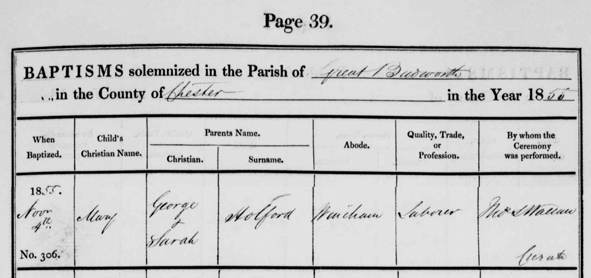 Page 39.
BAPTISMS solemnized in the Parish of Great Budworth
in the County of Chester in the Year 1855
When Baptized. Child's Christian Name. Parents Name. Abode. Quality, Trade, or Profession. By whom the Ceremony was performed.
Christian. Surname.
1855.
Novr 4th Mary George & Sarah Holford Wincham Laborer Thos
No. 306. Curate